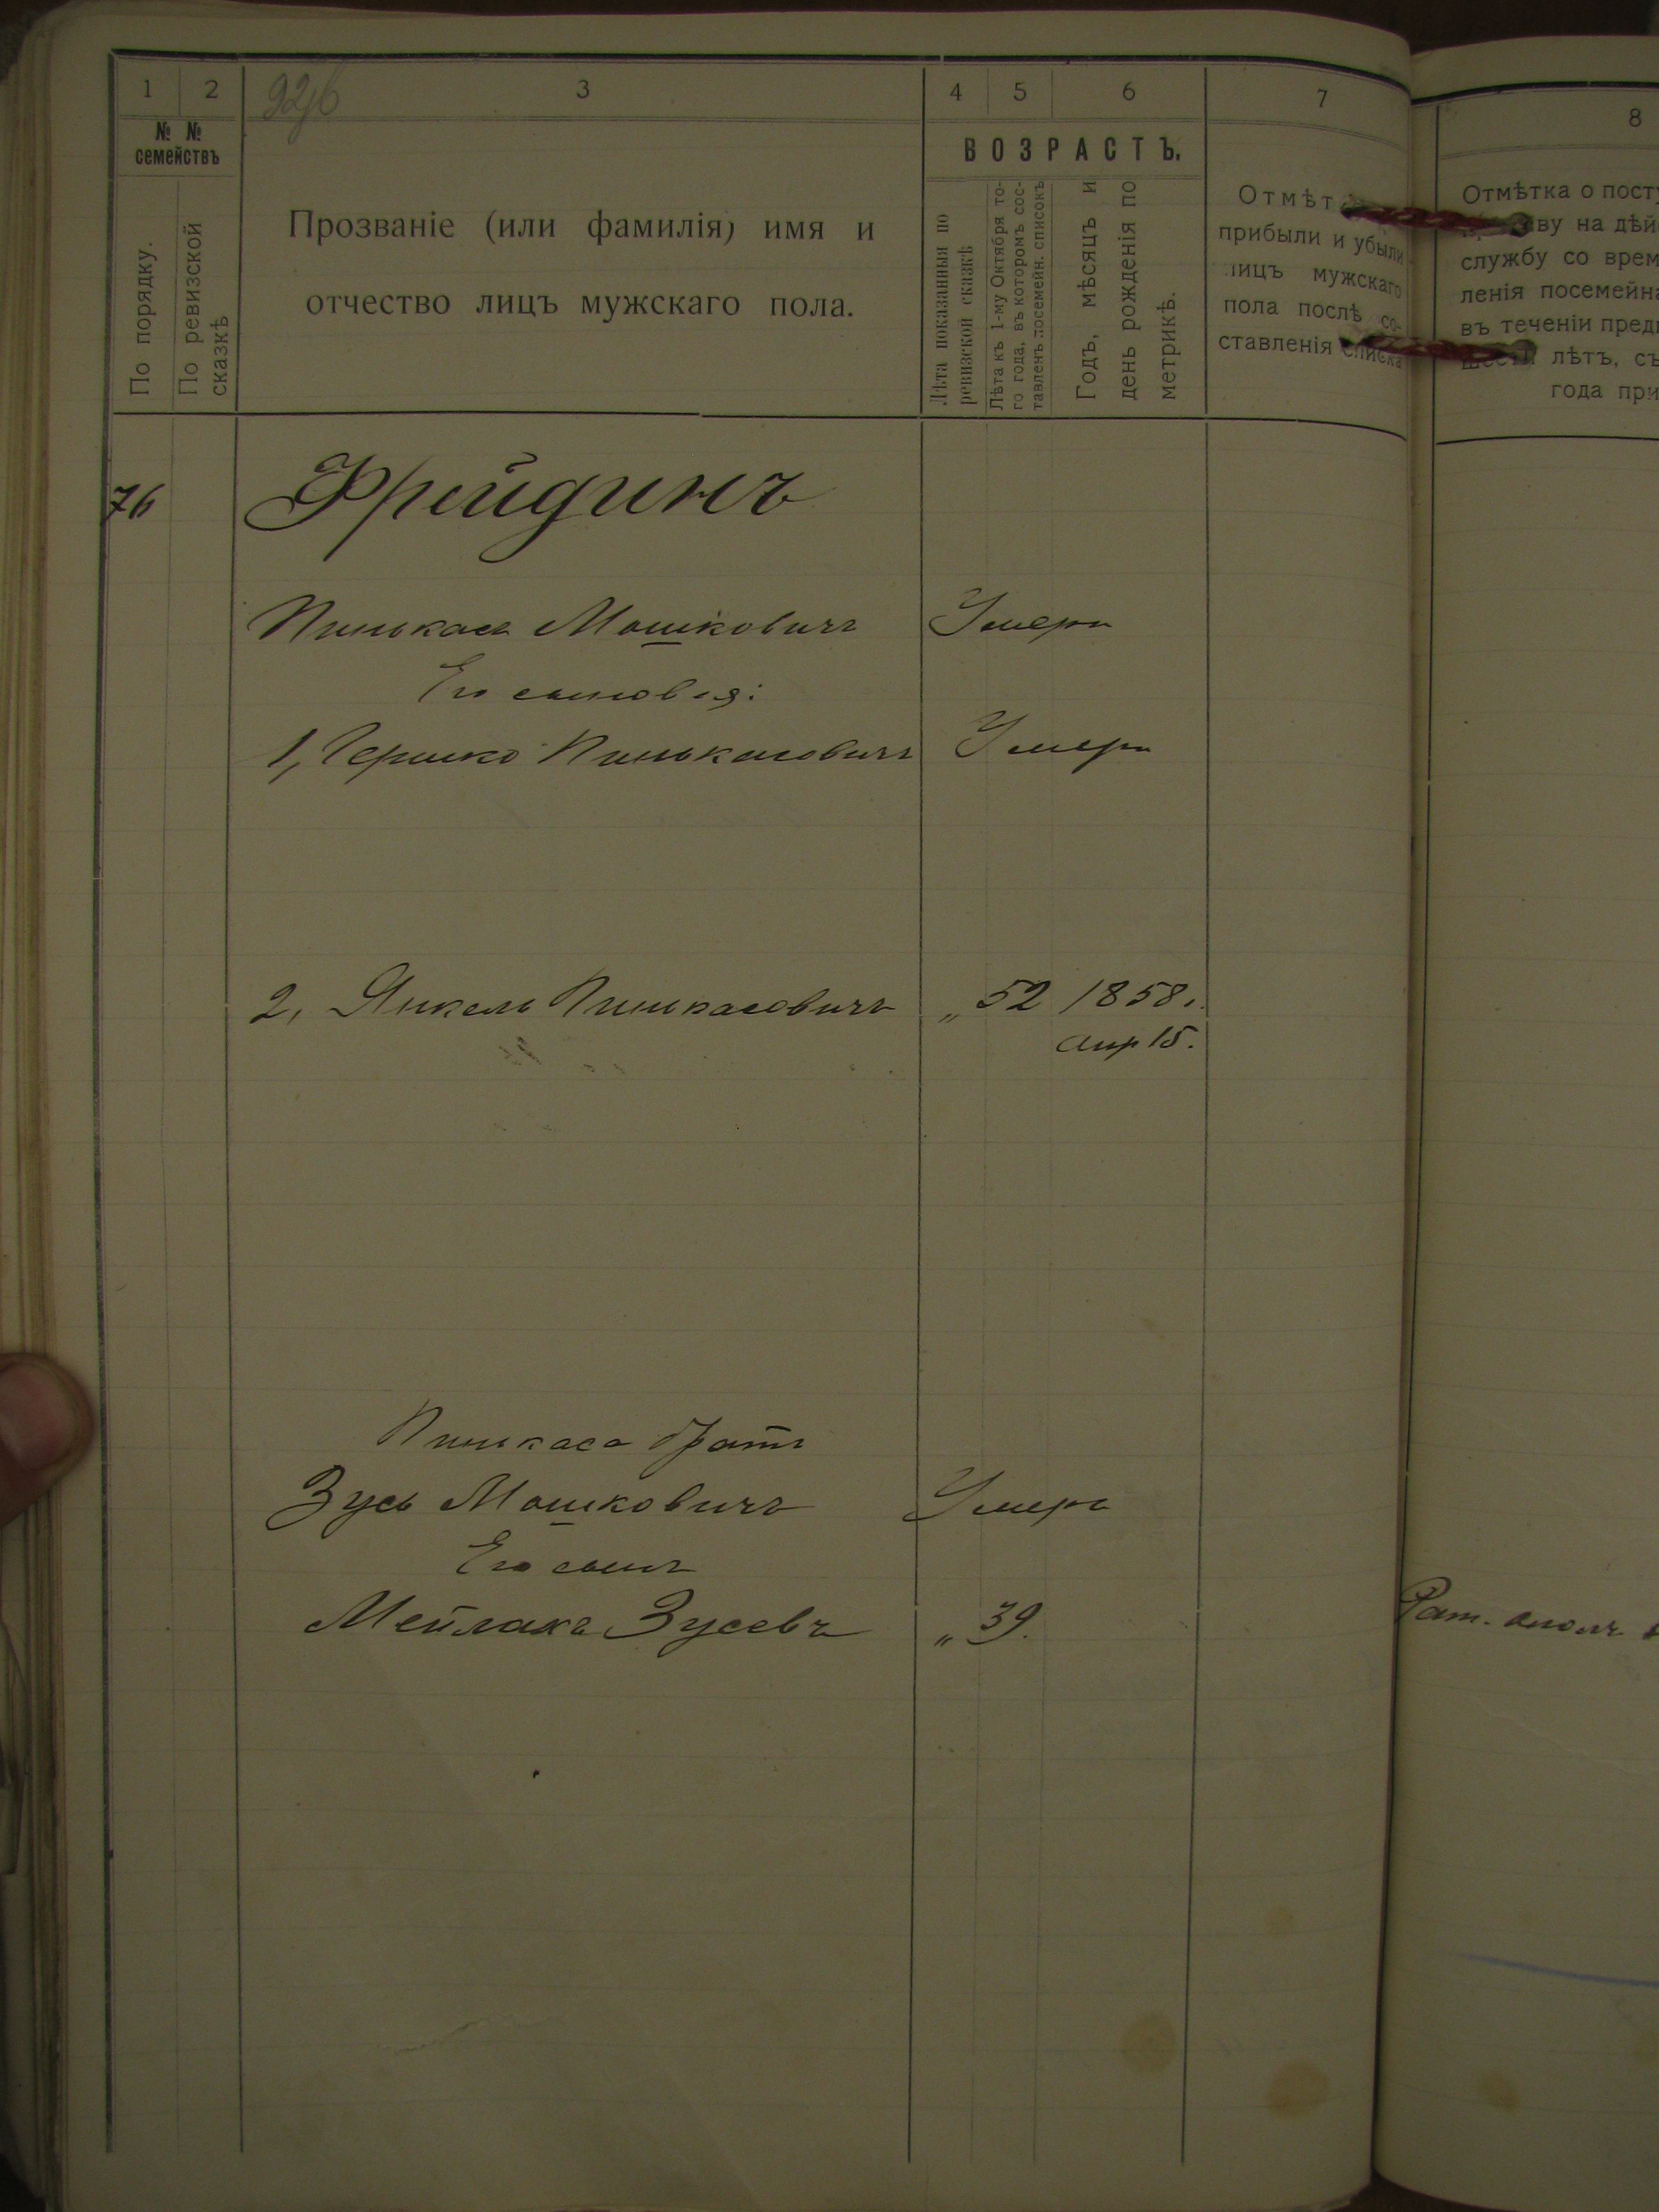 1 2 3 4 5 6 7 8
№ № семействъ
По порядку.
По ревизской сказкѣ
Прозваніе (или фамилія) имя и
отчество лицъ мужскаго пола.
ВОЗРАСТЪ.
Лѣта показанныя по
ревизской сказкѣ
Лѣта къ 1-му Октября то-
го года, въ которомъ сос-
тавленъ посемейн. списокъ
Годъ, мѣсяцъ и
день рожденія по
метрикѣ.
Отмѣт
прибыли и убыли
лицъ мужскаго
пола послѣ со-
ставленія списка
Отмѣтка о пост
ву на дѣй
службу со врем
ленія посемейн
въ теченіи пред
шести лѣтъ, съ
года при
76 Фрейдинъ
Пинькасъ Мошковичъ Умеръ
Его сыновья:
1, Гершко Пинькасовичъ Умеръ
2, Янкель Пинкасовичъ „ 52 1858.
апр 15.
Пинкаса братъ
Зусь Мошковичъ Умеръ
Его сынъ
Мейлахъ Зусевъ „ 39.
Рат. ополч